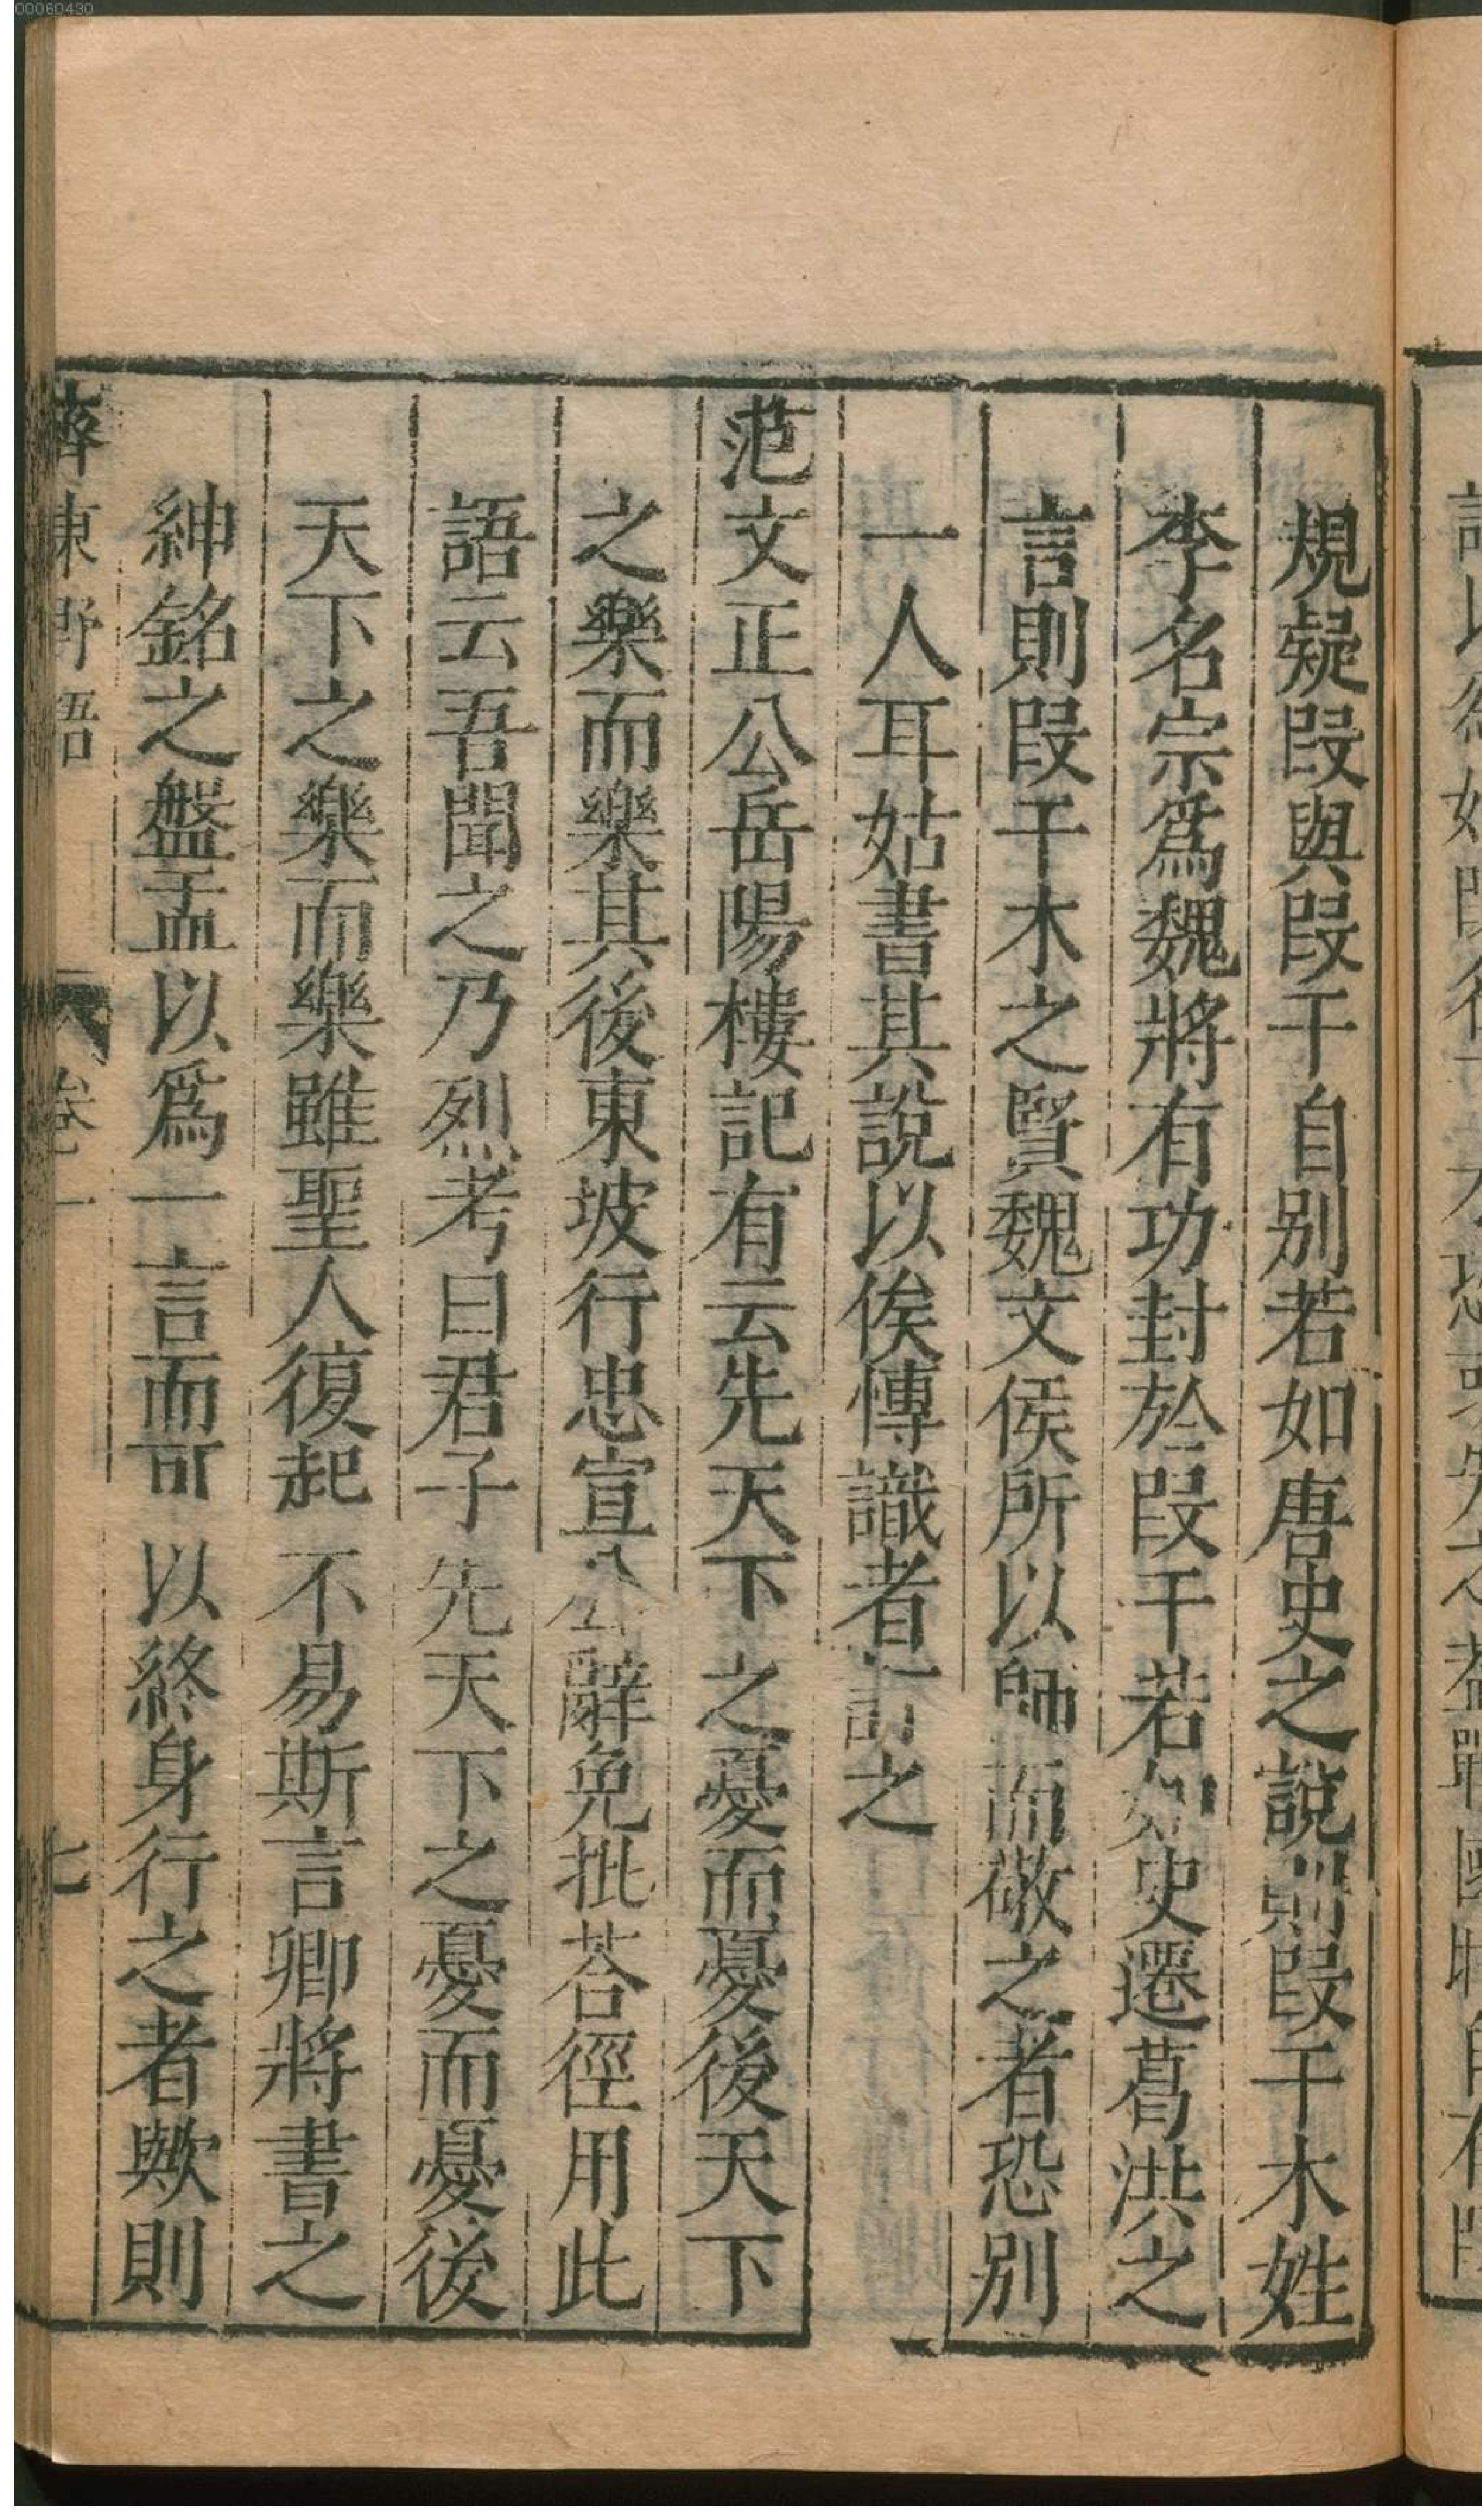 規疑段與段干自别若如唐史之說則段干木姓
李名宗爲魏將有功封於段干若如史遷葛洪之
言則段干木之賢魏文侯所以師而敬之者恐别
一人耳姑書其說以俟慱識者訂之
范文正公岳陽樓記有云先天下之憂而憂後天下
之樂而樂其後東坡行忠宣公辭免批荅徑用此
語云吾聞之乃烈考曰君子先天下之憂而憂後
天下之樂而樂雖聖人復起不易斯言卿將書之
紳銘之盤盂以爲一言而可以終身行之者歟則
齊東野語 卷一 七
00060430